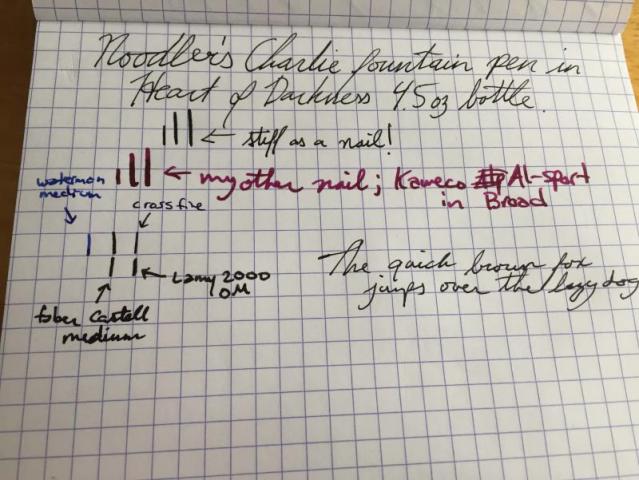 Noodler's Charlie fountain pen in
Heart of Darkness 4.5oz bottle.
← stiff as a nail!
← my other nail; Kaweco Al-sport
in Broad
waterman
medium
cross fine
← Lamy 2000
OM
faber Castell
medium
The quick brown fox
jumps over the lazy dog